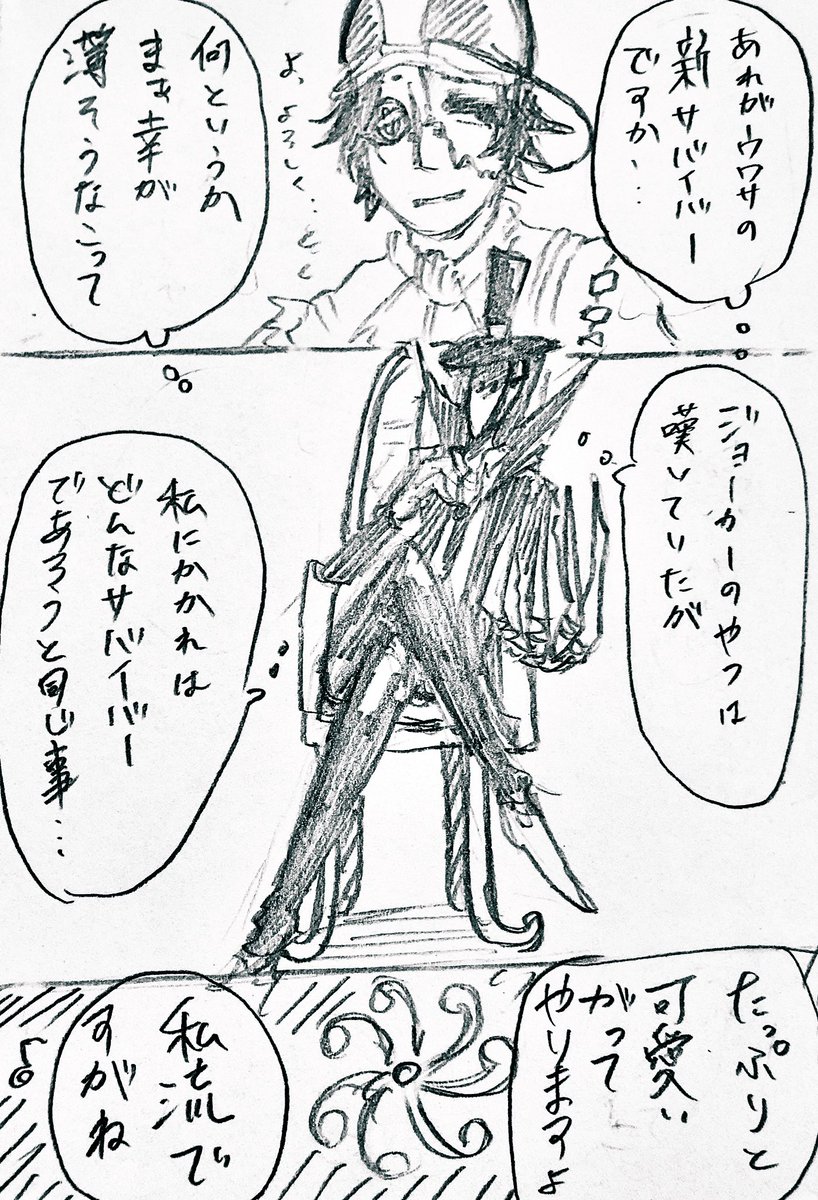 あれがウワサの
新サバイバー
ですか…
よ、よろしく…
何というか
また幸が
薄そうなこって
ジョーカーのやつは
嘆いていたが
私にかかれは
どんなサバイバー
であろうと同じ事…
たっぷりと
可愛い
がって
やりますよ
私流で
すがね